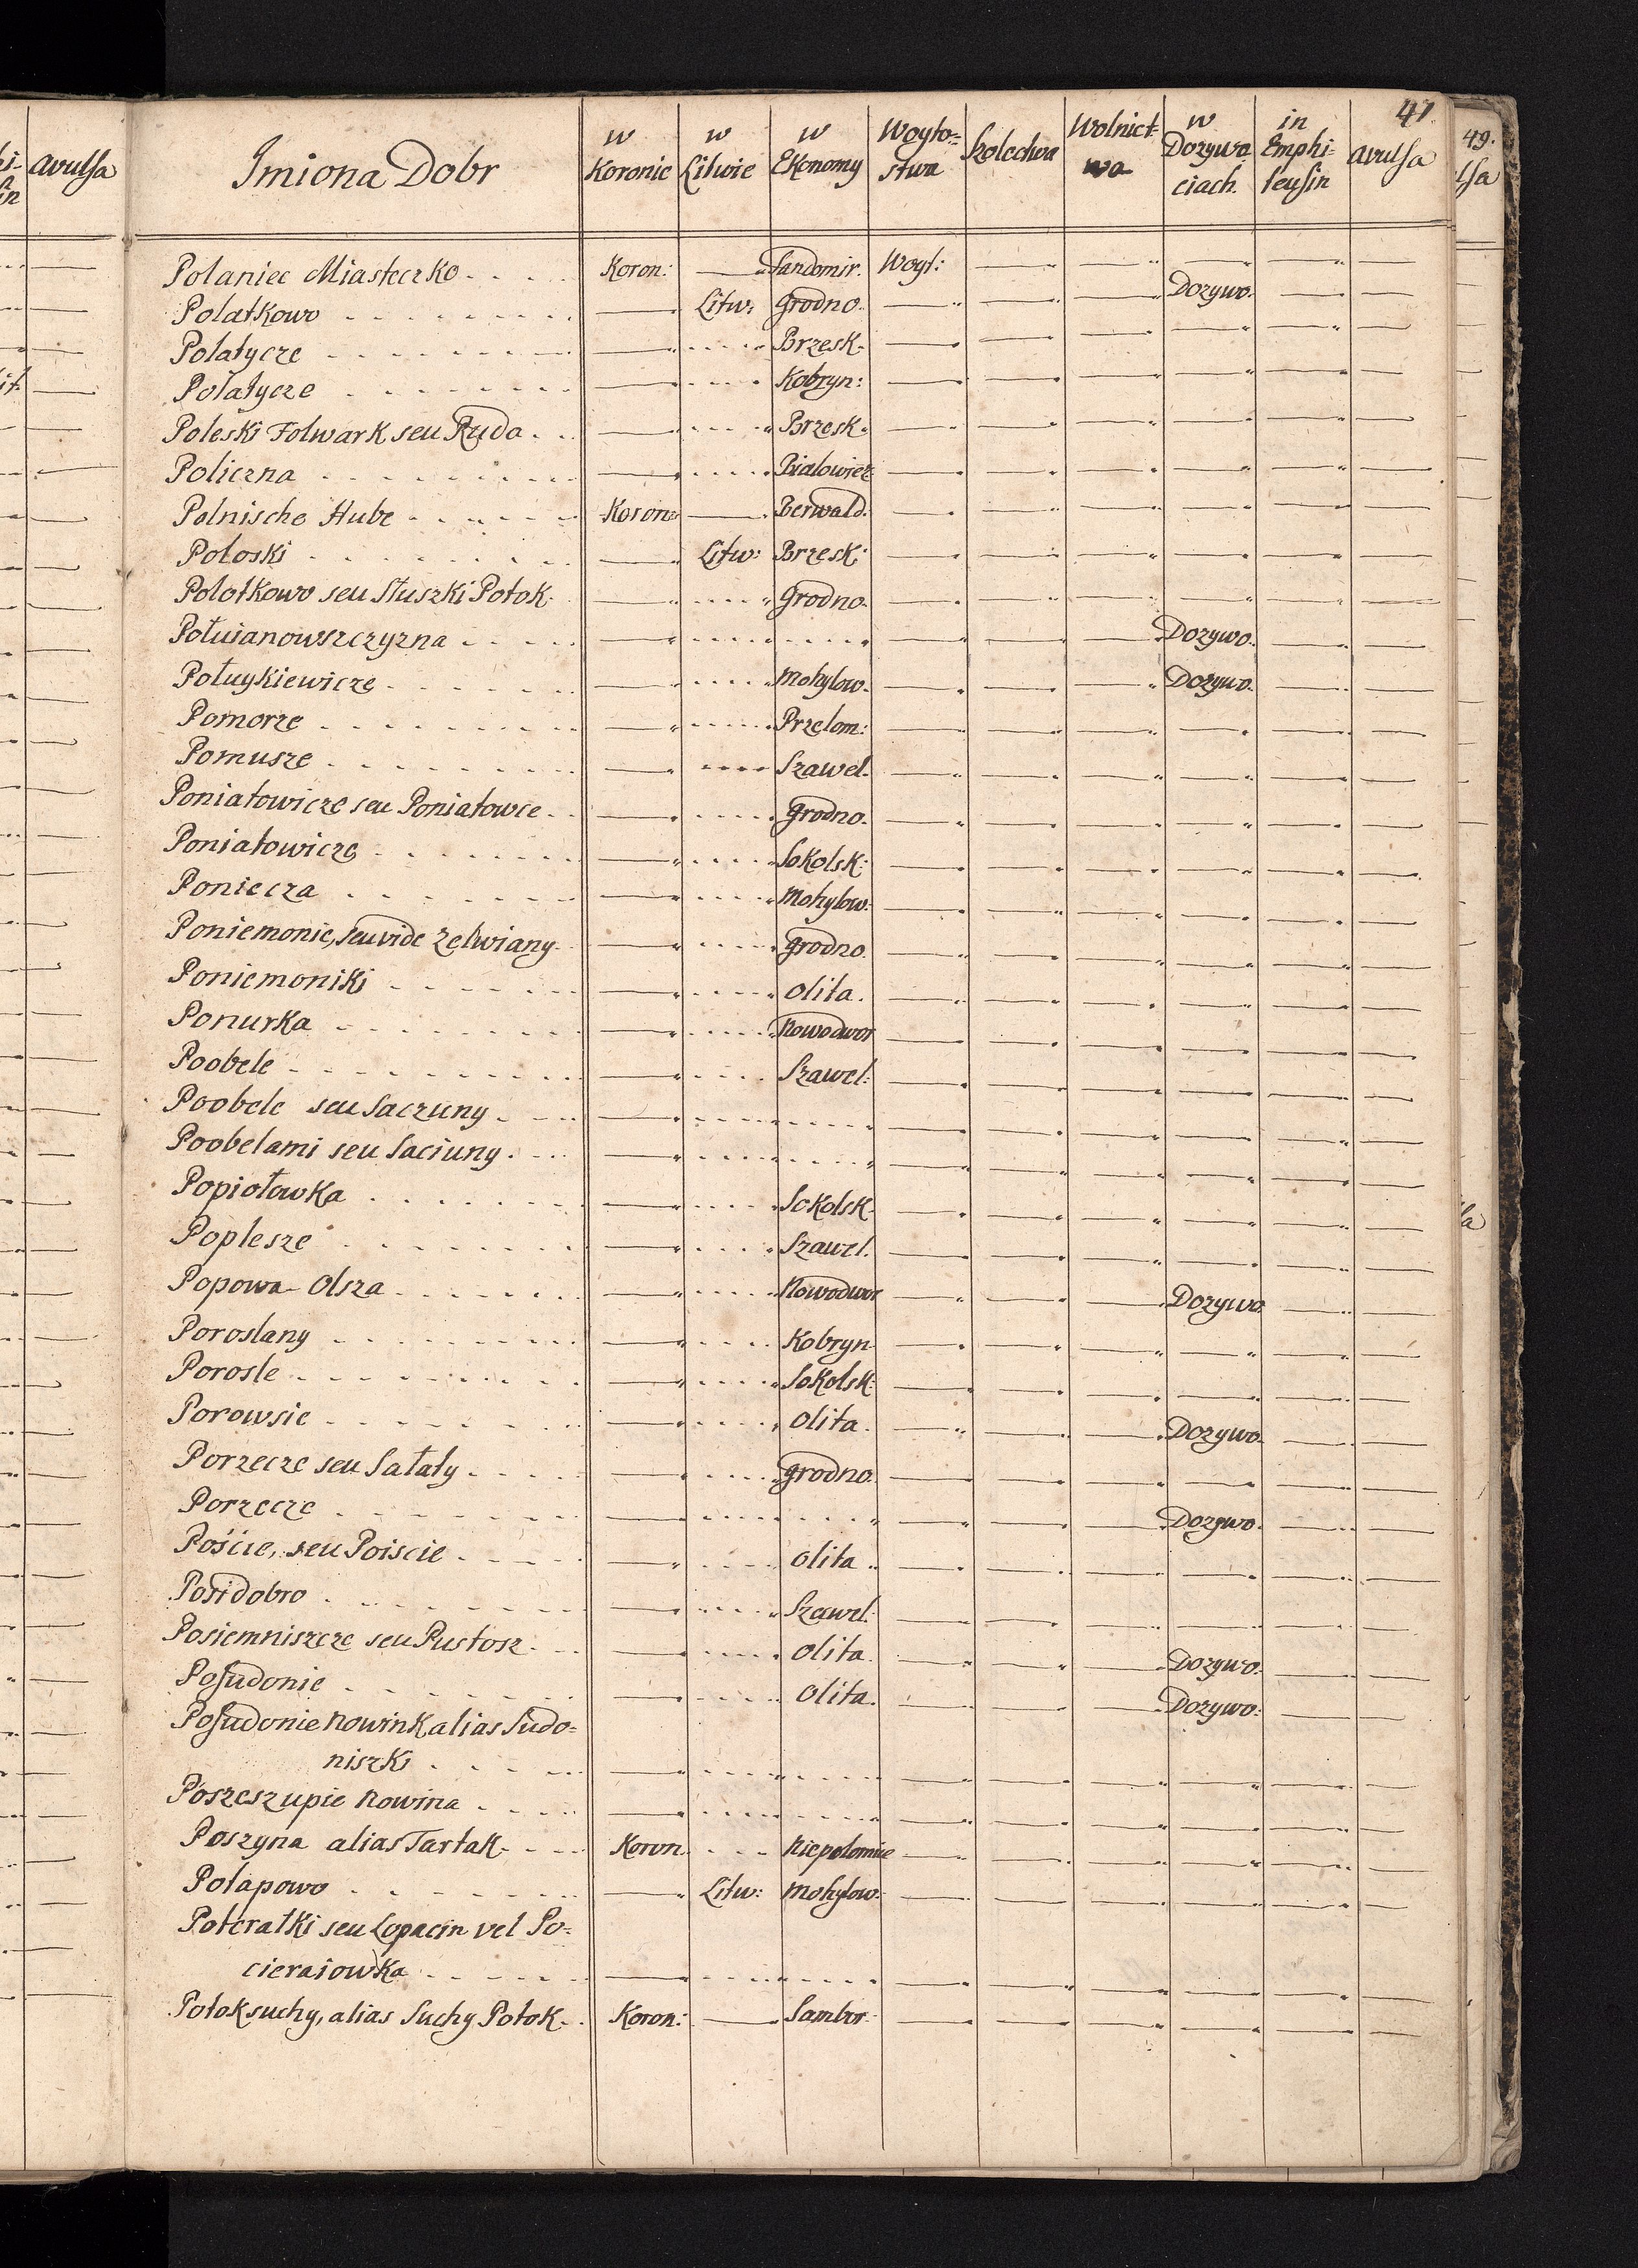 47
49.
Imiona Dobr w Koronie w Litwie w Ekonomy Woyto=stwa Szolectwa Wolnict=wa w Dozywociach. in Emphi=teusin avulsa
Polaniec Miasteczko Koron: Sandomir. Woyt:
Polatkowo Litw: Grodno. Dozywo.
Polatycze Brzesk.
Polatycze Kobryn:
Poleski Folwark seu Ruda Brzesk.
Policzna Bialowiez.
Polnische Hube Koron: Berwald.
Poloski Litw: Brzesk:
Polotkowo seu Słuszki Potok Grodno.
Połuianowszczyzna Dozywo.
Połuykiewicze Mohylow. Dozywo.
Pomorze Przelom:
Pomusze Szawel.
Poniatowicze seu Poniatowce Grodno.
Poniatowicze Sokolsk:
Poniecza Mohylow:
Poniemonie, seu vide Zelwiany Grodno.
Poniemoniki Olita.
Ponurka Nowodwor
Poobele Szawel:
Poobele seu Saczuny
Poobelami seu Saciuny.
Popiołowka Sokolsk.
Poplesze Szawel.
Popowa-Olsza Nowodwor Dozywo
Poroslany Kobryn
Porosle Sokolsk:
Porowsie Olita. Dozywo.
Porzecze seu Sałaty Grodno.
Porzecze Dozywo.
Pośćie, seu Poiscie Olita
Posidobro Szawel:
Posiemniszcze seu Pustosz Olita. Dozywo.
Posudonie Olita. Dozywo:
Posudonie Nowink alias Sudo=
niszki
Poszeszupie Nowina
Poszyna alias Tartak Koron. Niepolomie
Potapowo Litw: Mohylow.
Poteratki seu Lopacin vel Po=
cieraiowka
Potok suchy, alias Suchy Potok Koron: Sambor.